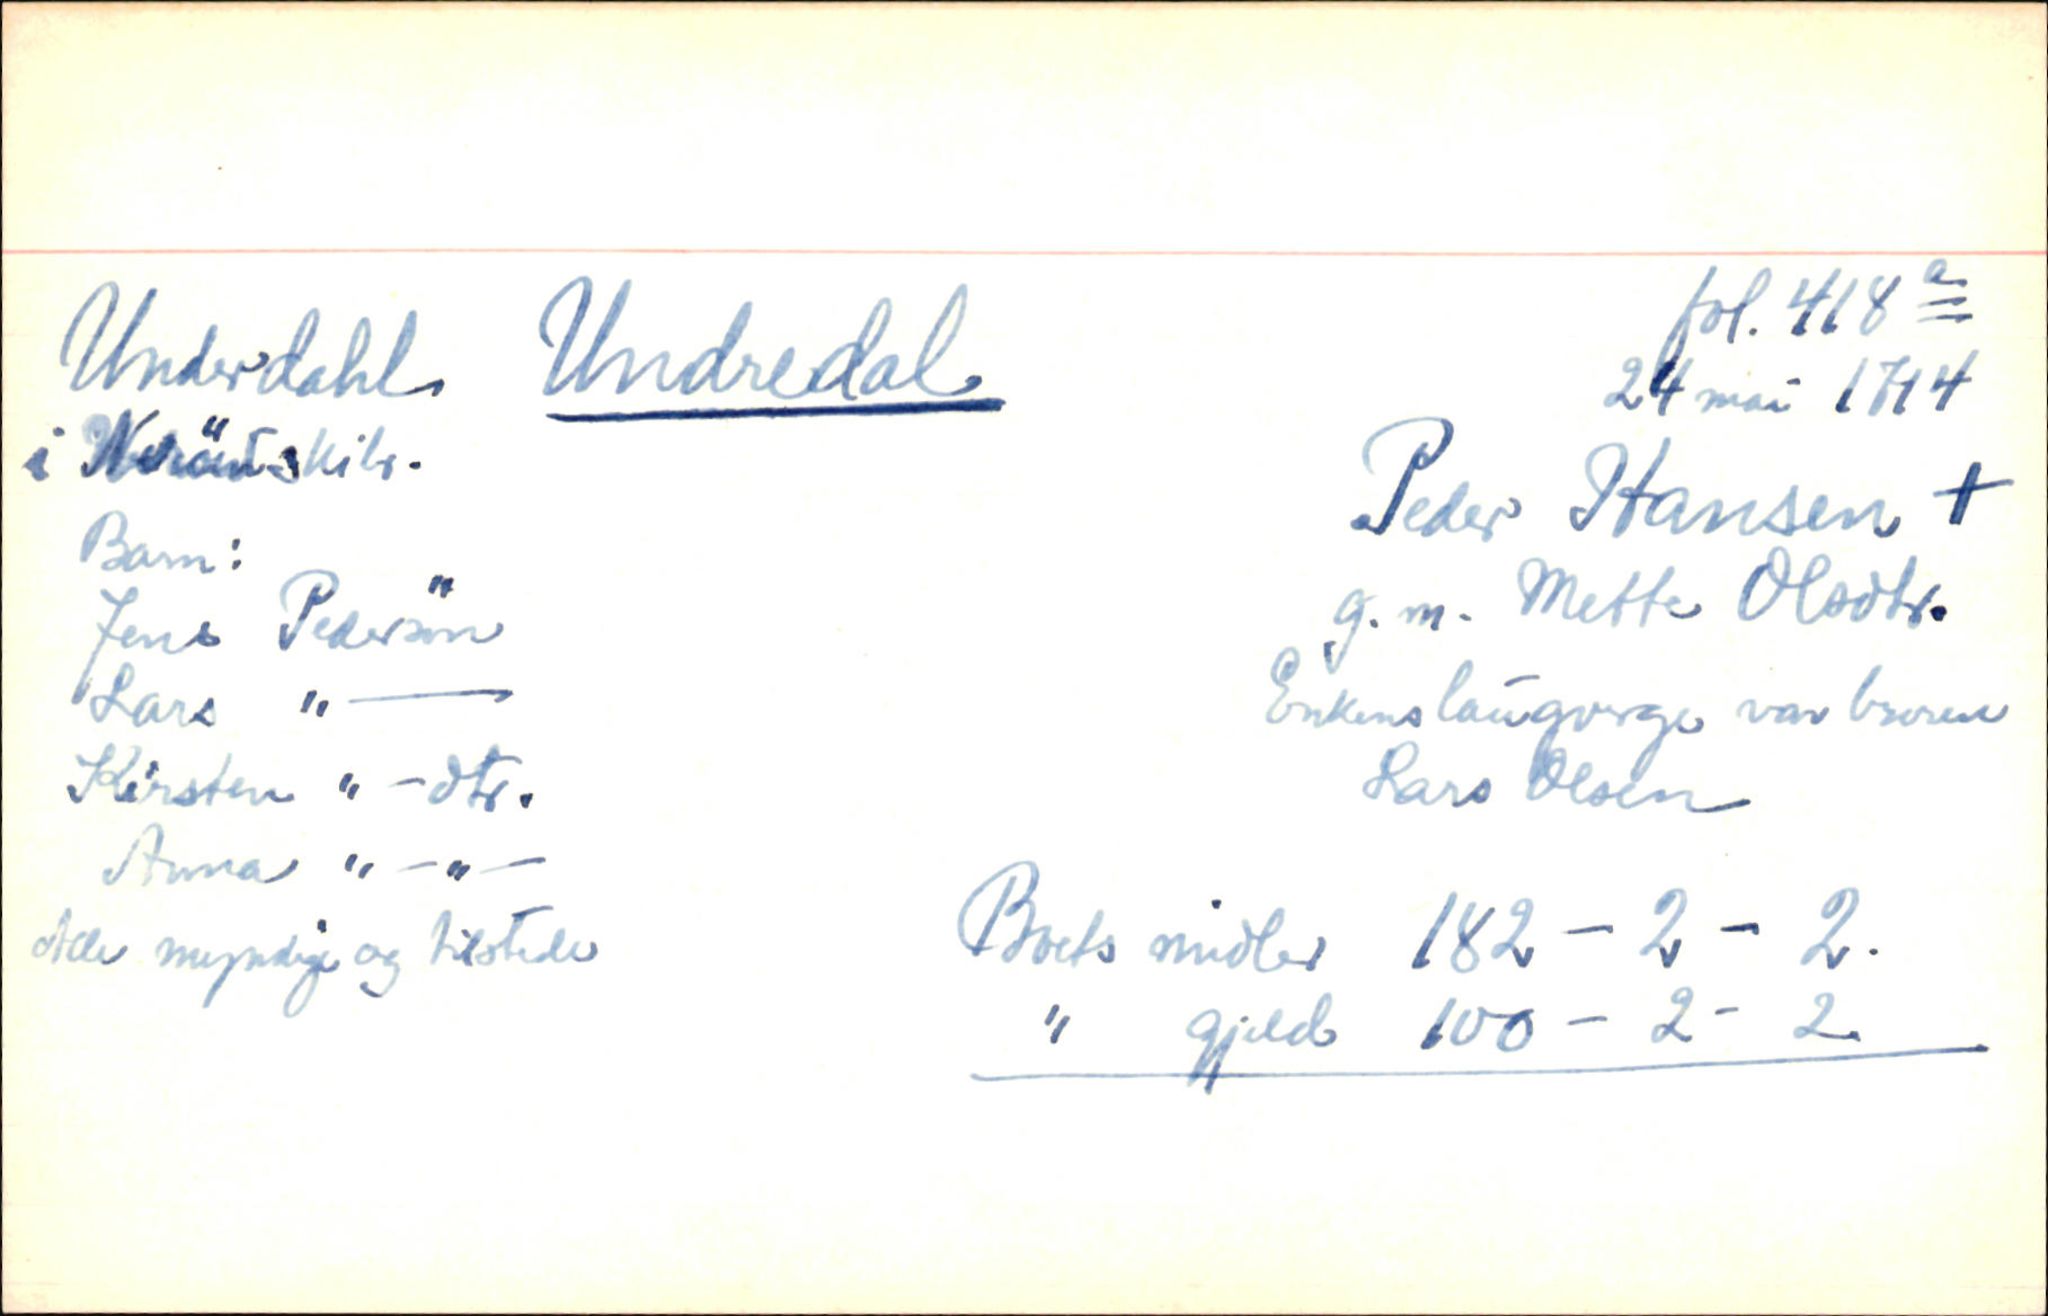 Underdahl Undredal
fol. 418 a
24 mai 1714
i skibr.
Peder Hansen +
g. m. Mette Olsdtr.
Enkens laugverge var broren
Lars Olsen
Barn:
Jens Pedersön
Lars " —
Kirsten " - dtr.
Anna " - " -
Alle myndige og tilstede
Boets midler 182 - 2 - 2.
" gjeld 100 - 2 - 2